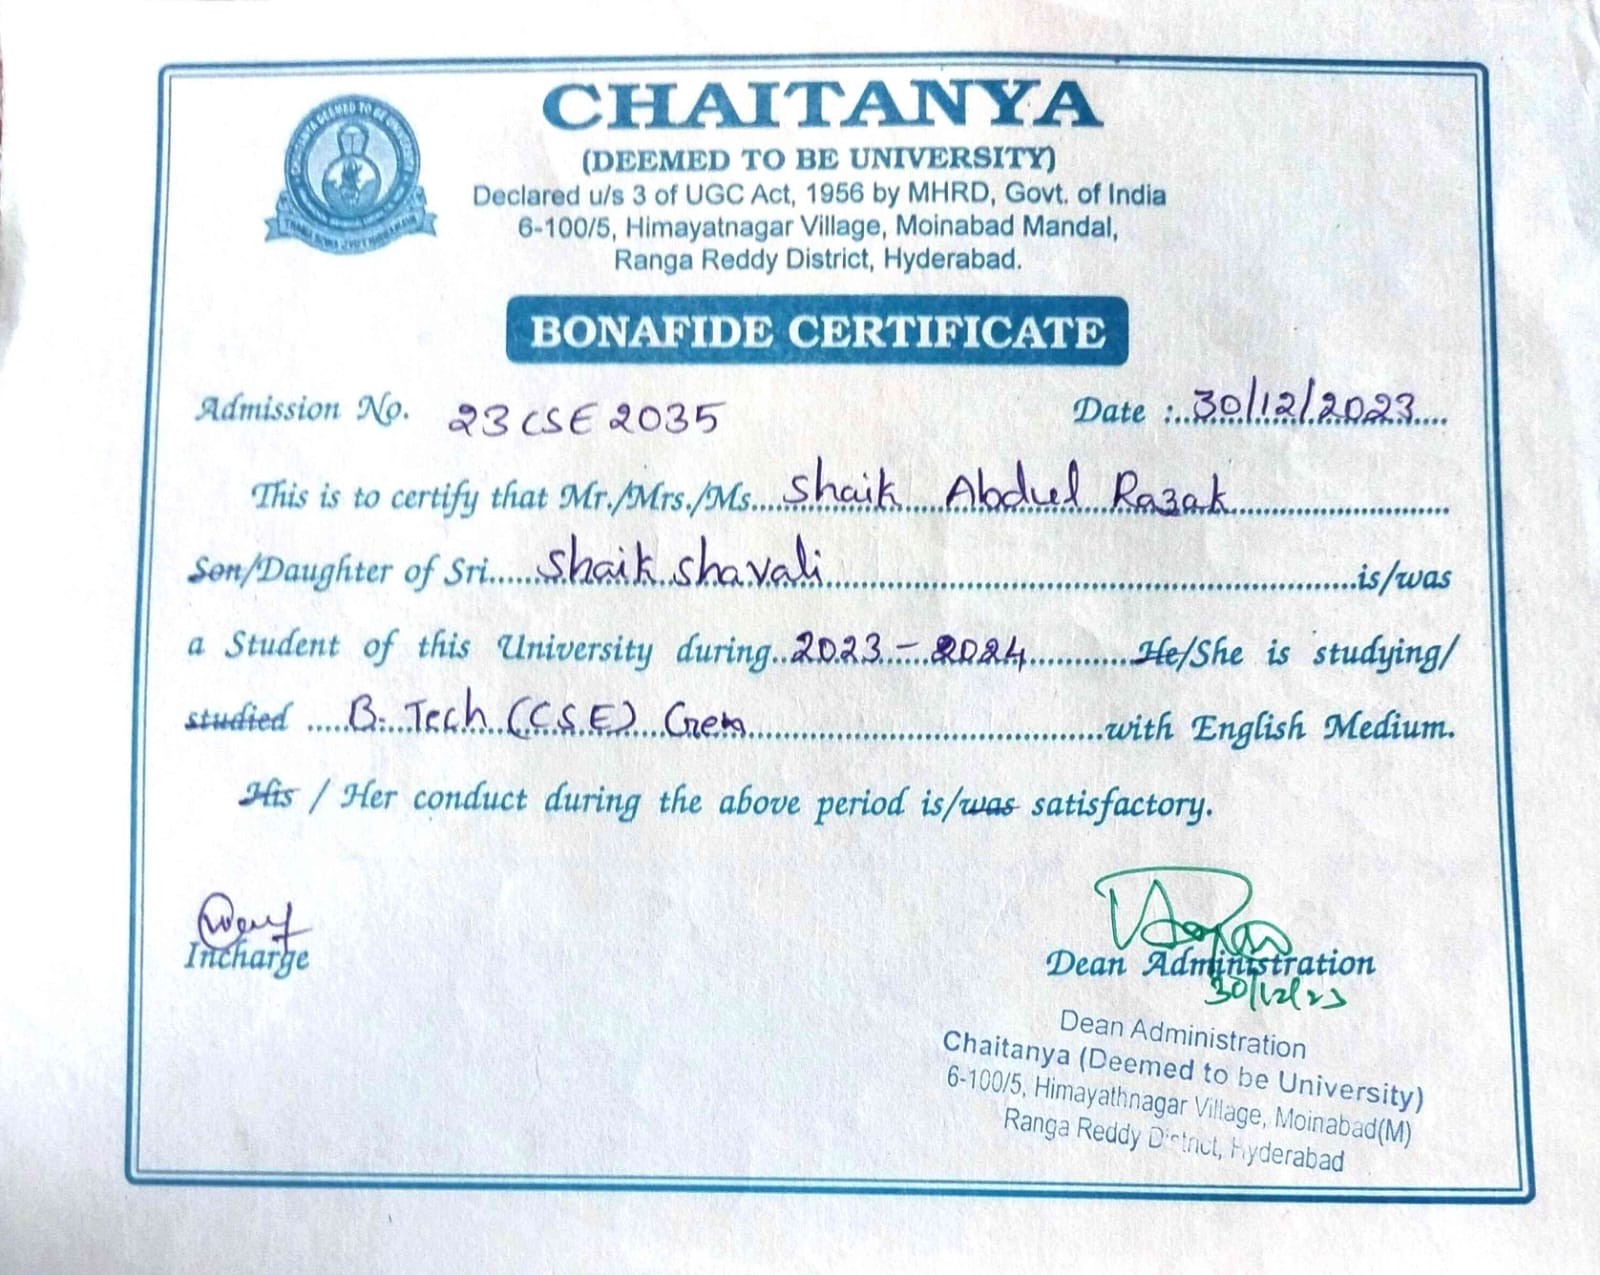 CHAITANYA DEEMED TO BE UNIVERSITY
CHAITANYA
(DEEMED TO BE UNIVERSITY)
Declared u/s 3 of UGC Act, 1956 by MHRD, Govt. of India
6-100/5, Himayatnagar Village, Moinabad Mandal,
Ranga Reddy District, Hyderabad.
BONAFIDE CERTIFICATE
Admission No. 23CSE2035 Date :..30/12/2023....
This is to certify that Mr./Mrs./Ms....Shaik Abdul Razak
Son/Daughter of Sri......Shaik Shavali......is/was
a Student of this University during..2023-2024......He/She is studying/
studied .....B.Tech (CSE) Gen......with English Medium.
His / Her conduct during the above period is/was satisfactory.
Incharge
Dean Administration
30/12/23
Dean Administration
Chaitanya (Deemed to be University)
6-100/5, Himayathnagar Village, Moinabad(M)
Ranga Reddy District, Hyderabad